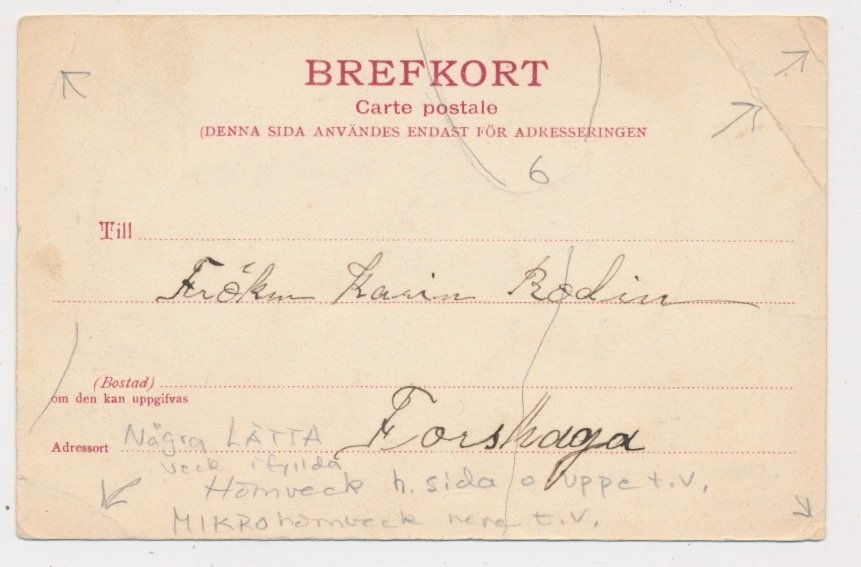 BREFKORT
Carte postale
(DENNA SIDA ANVÄNDES ENDAST FÖR ADRESSERINGEN
6
Till
Fröken Karin Rodin
(Bostad)
om den kan uppgifvas
Adressort Forshaga
Några LÄTTA
veck ifyllda
Hörnveck h. sida o uppe t.v.
MIKROhörnveck nere t.v.